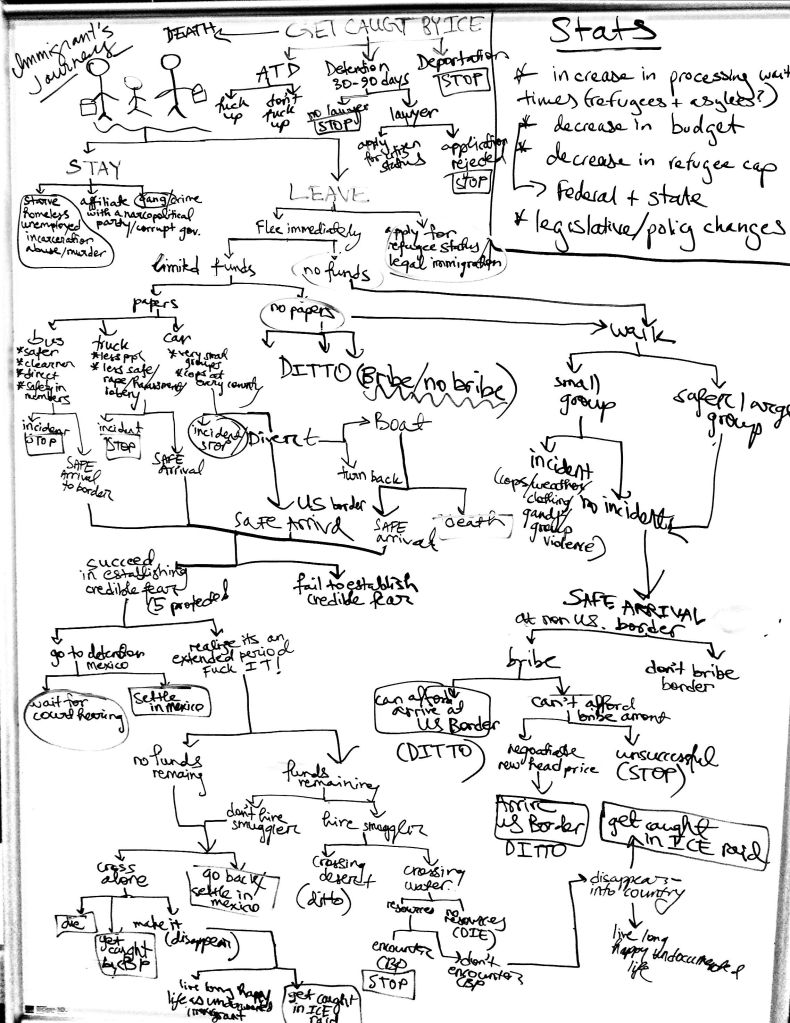 Immigrant's
Journeys
DEATH
GET CAUGT BY ICE
ATD
fuck
up
don't
fuck
up
Detention
30-90 days
no lawyer
STOP
lawyer
apply
for
status
application
rejected
STOP
Deportation
STOP
Stats
* increase in processing wait
times (refugees + asylees?)
* decrease in budget
* decrease in refugee cap
→ Federal + state
* legislative/policy changes
STAY
starve
homeless
unemployed
incarceration
abuse/murder
affiliate
with a narcopolitical
party/corrupt gov.
gang/crime
LEAVE
Flee immediately
apply for
refugee status
legal immigration
limited funds
no funds
papers
no papers
bus
*safer
*cleanner
*direct
*safety in
numbers
truck
*less ppl
*less safe
rape/harassment/
robery
car
*very small
groups
*cops at
every country
DITTO (Bribe/no bribe)
walk
small
group
safer/large
group
incident
STOP
SAFE
Arrival
to border
incident
STOP
SAFE
Arrival
incident
STOP
Divert
Boat
turn back
US border
safe Arrival
SAFE
arrival
death
incident
(cops/weather/
clothing
gangs/
group
violence)
no incident
succeed
in establishing
credible fear
(5 protected
fail to establish
credible fear
SAFE ARRIVAL
at non U.S. border
go to detention
mexico
realize its an
extended period
Fuck IT!
wait for
court hearing
settle
in mexico
bribe
don't bribe
border
can afford
arrive at
US Border
(DITTO)
can't afford
bribe amont
negotiate
new head price
unsuccessful
(STOP)
Arrive
US Border
DITTO
get caught
in ICE raid
no funds
remaing
funds
remaining
don't hire
smuggler
hire smuggler
cross
alone
go back/
settle in
mexico
crossing
desert
(ditto)
crossing
water
resources
no
resources
(DIE)
disappear
into country
die
get
caught
by CBP
make it
(disappear)
encounter
CBP
STOP
don't
encounter
CBP
live long
happy undocumented
life
live long happy
life as undocumented
immigrant
get caught
in ICE
raid